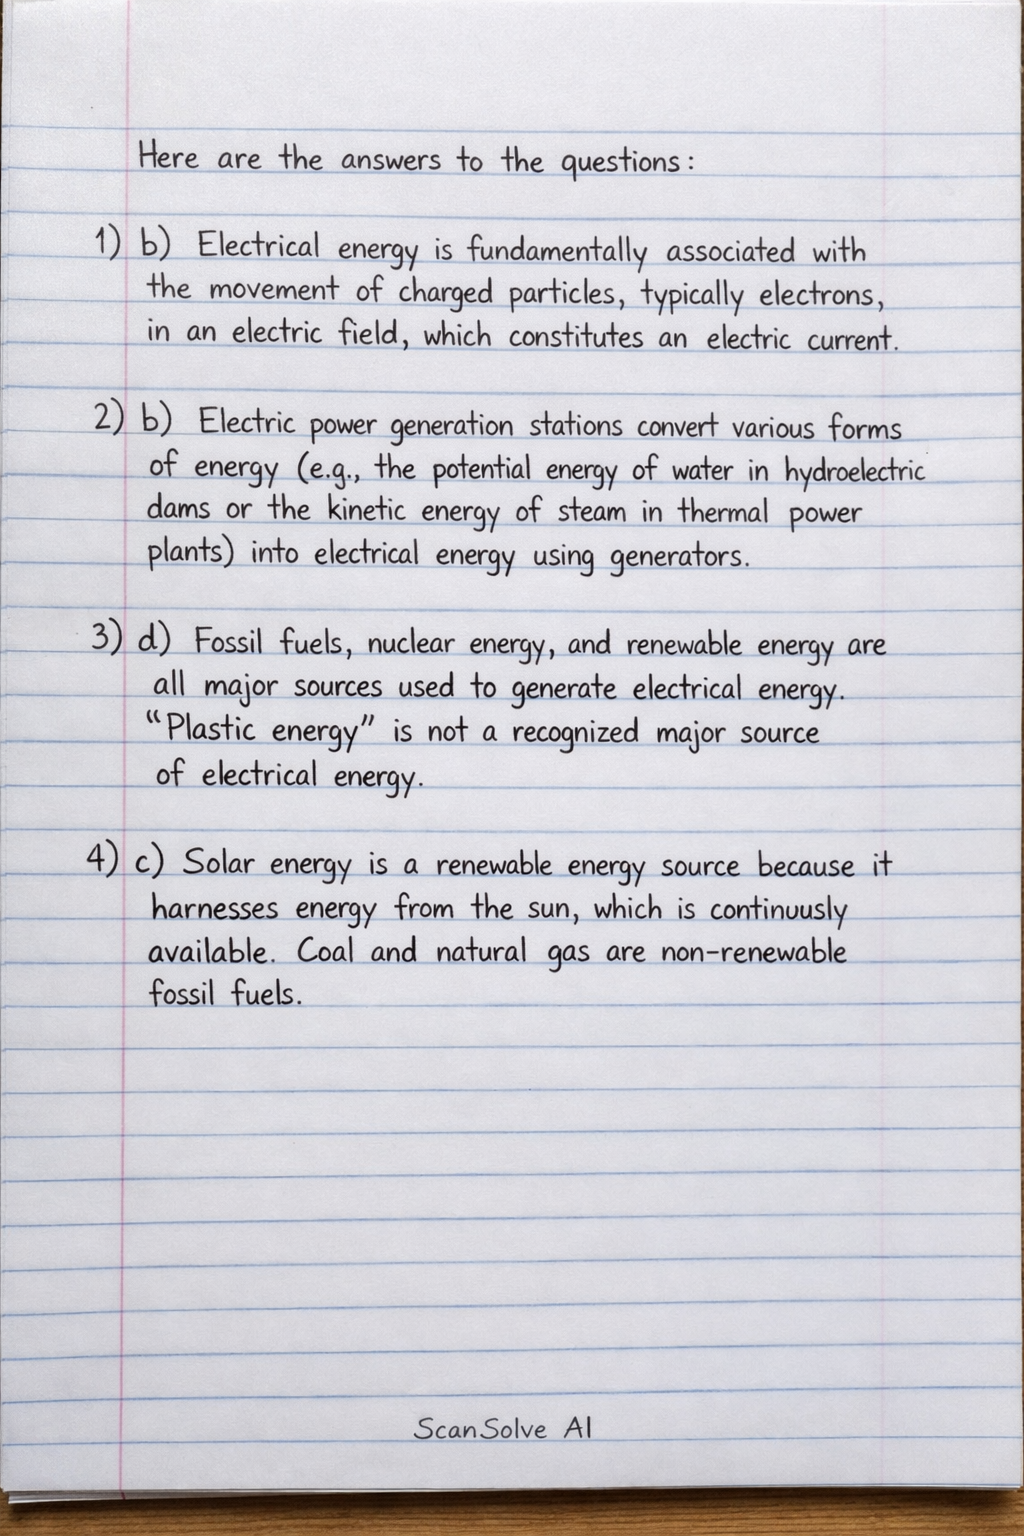 Here are the answers to the questions:
1) b) Electrical energy is fundamentally associated with
the movement of charged particles, typically electrons,
in an electric field, which constitutes an electric current.
2) b) Electric power generation stations convert various forms
of energy (e.g., the potential energy of water in hydroelectric
dams or the kinetic energy of steam in thermal power
plants) into electrical energy using generators.
3) d) Fossil fuels, nuclear energy, and renewable energy are
all major sources used to generate electrical energy.
“Plastic energy” is not a recognized major source
of electrical energy.
4) c) Solar energy is a renewable energy source because it
harnesses energy from the sun, which is continuusly
available. Coal and natural gas are non-renewable
fossil fuels.
ScanSolve AI